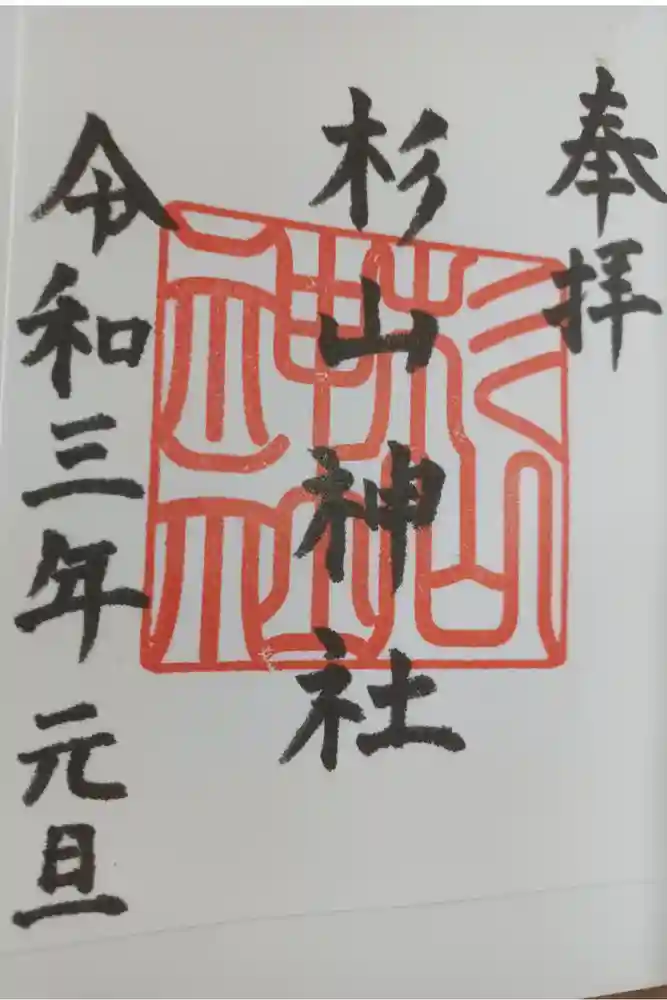 奉拝
杉山神社
令和三年 元旦
杉山
神社